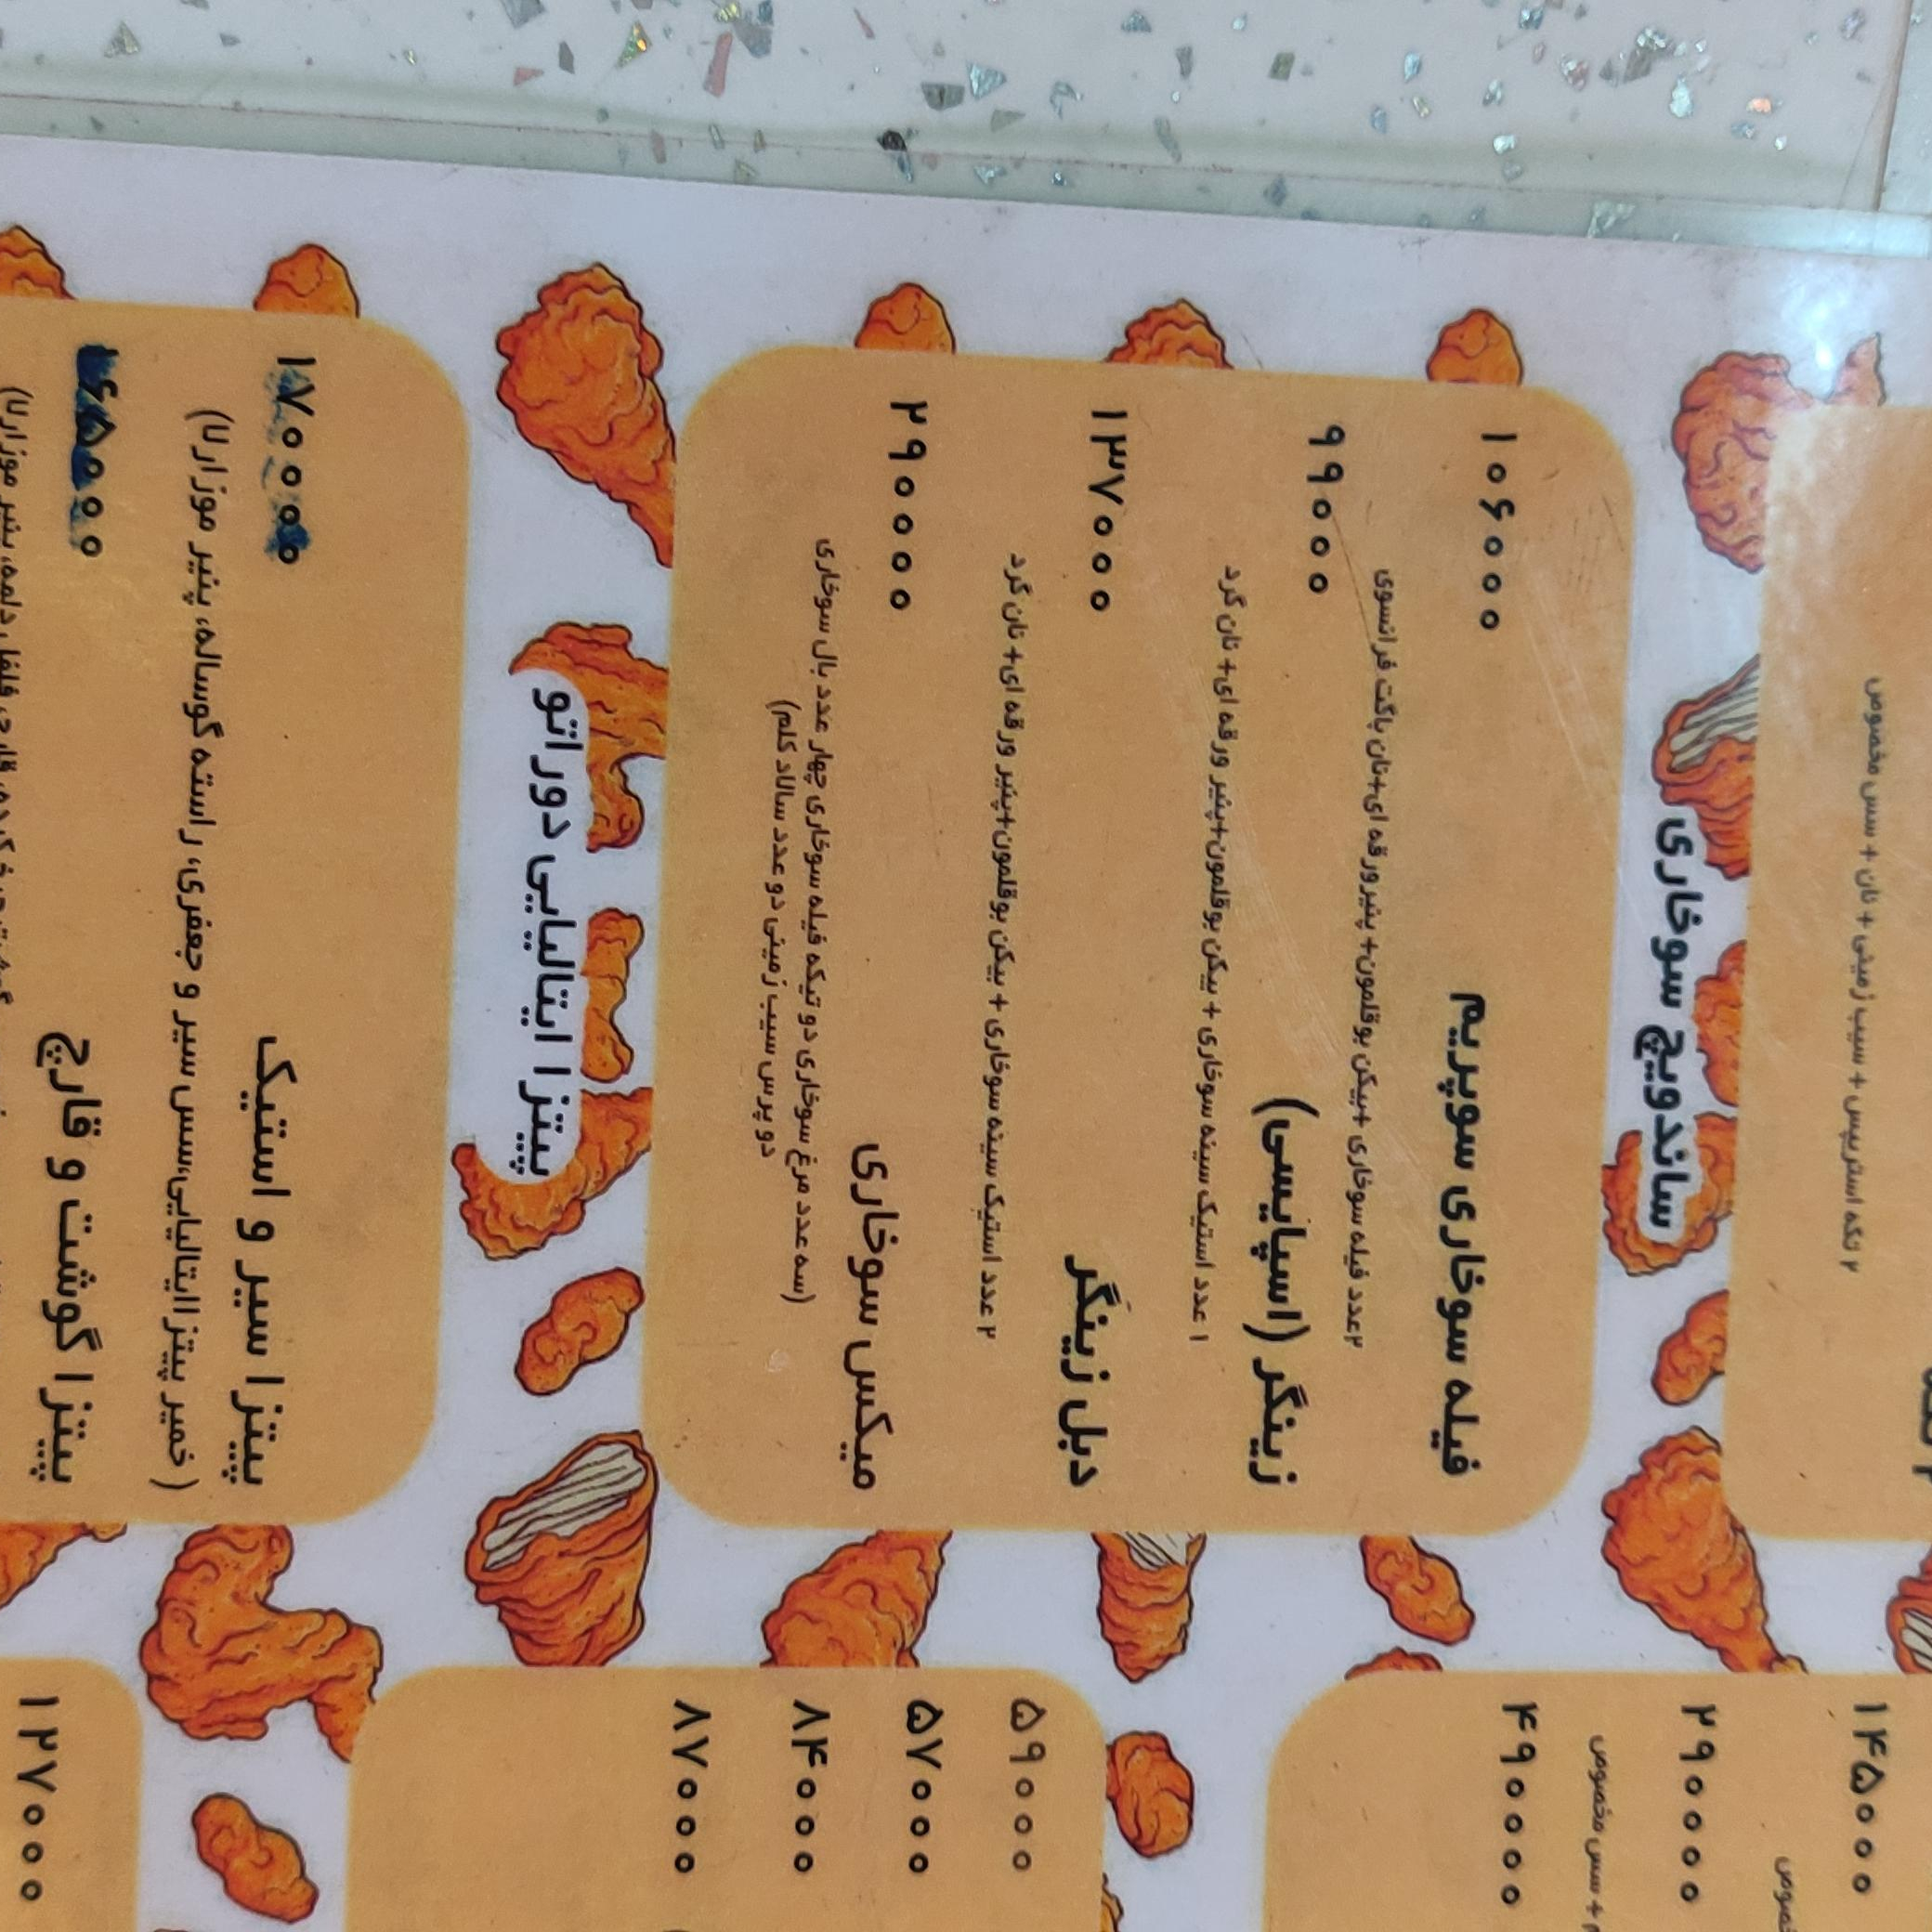 ۲ تکه استریپس + سیب زمینی + نان + سس مخصوص
ساندویچ سوخاری
فیله سوخاری سوپریم ۱۰۶۰۰۰
۲عدد فیله سوخاری +بیکن بوقلمون+ پنیرورقه ای+نان باگت فرانسوی
زینگر (اسپایسی) ۹۹۰۰۰
۱ عدد استیک سینه سوخاری + بیکن بوقلمون+پنیر ورقه ای+ نان گرد
دبل زینگر ۱۳۷۰۰۰
۲ عدد استیک سینه سوخاری + بیکن بوقلمون+پنیر ورقه ای+ نان گرد
میکس سوخاری ۲۹۰۰۰۰
(سه عدد مرغ سوخاری دو تیکه فیله سوخاری چهار عدد بال سوخاری
دو پرس سیب زمینی دو عدد سالاد کلم)
پیتزا ایتالیایی دوراتو
پیتزا سیر و استیک ۱۷۰۰۰۰
( خمیر پیتزا ایتالیایی،سس سیر و جعفری، راسته گوساله، پنیر موزارلا)
پیتزا گوشت و قارچ ۱۶۵۰۰۰
۱۴۵۰۰۰
مخصوص
۲۹۰۰۰۰
+ سس مخصوص
۴۹۰۰۰۰
۵۹۰۰۰
۵۷۰۰۰
۸۴۰۰۰
۸۷۰۰۰
۱۲۷۰۰۰